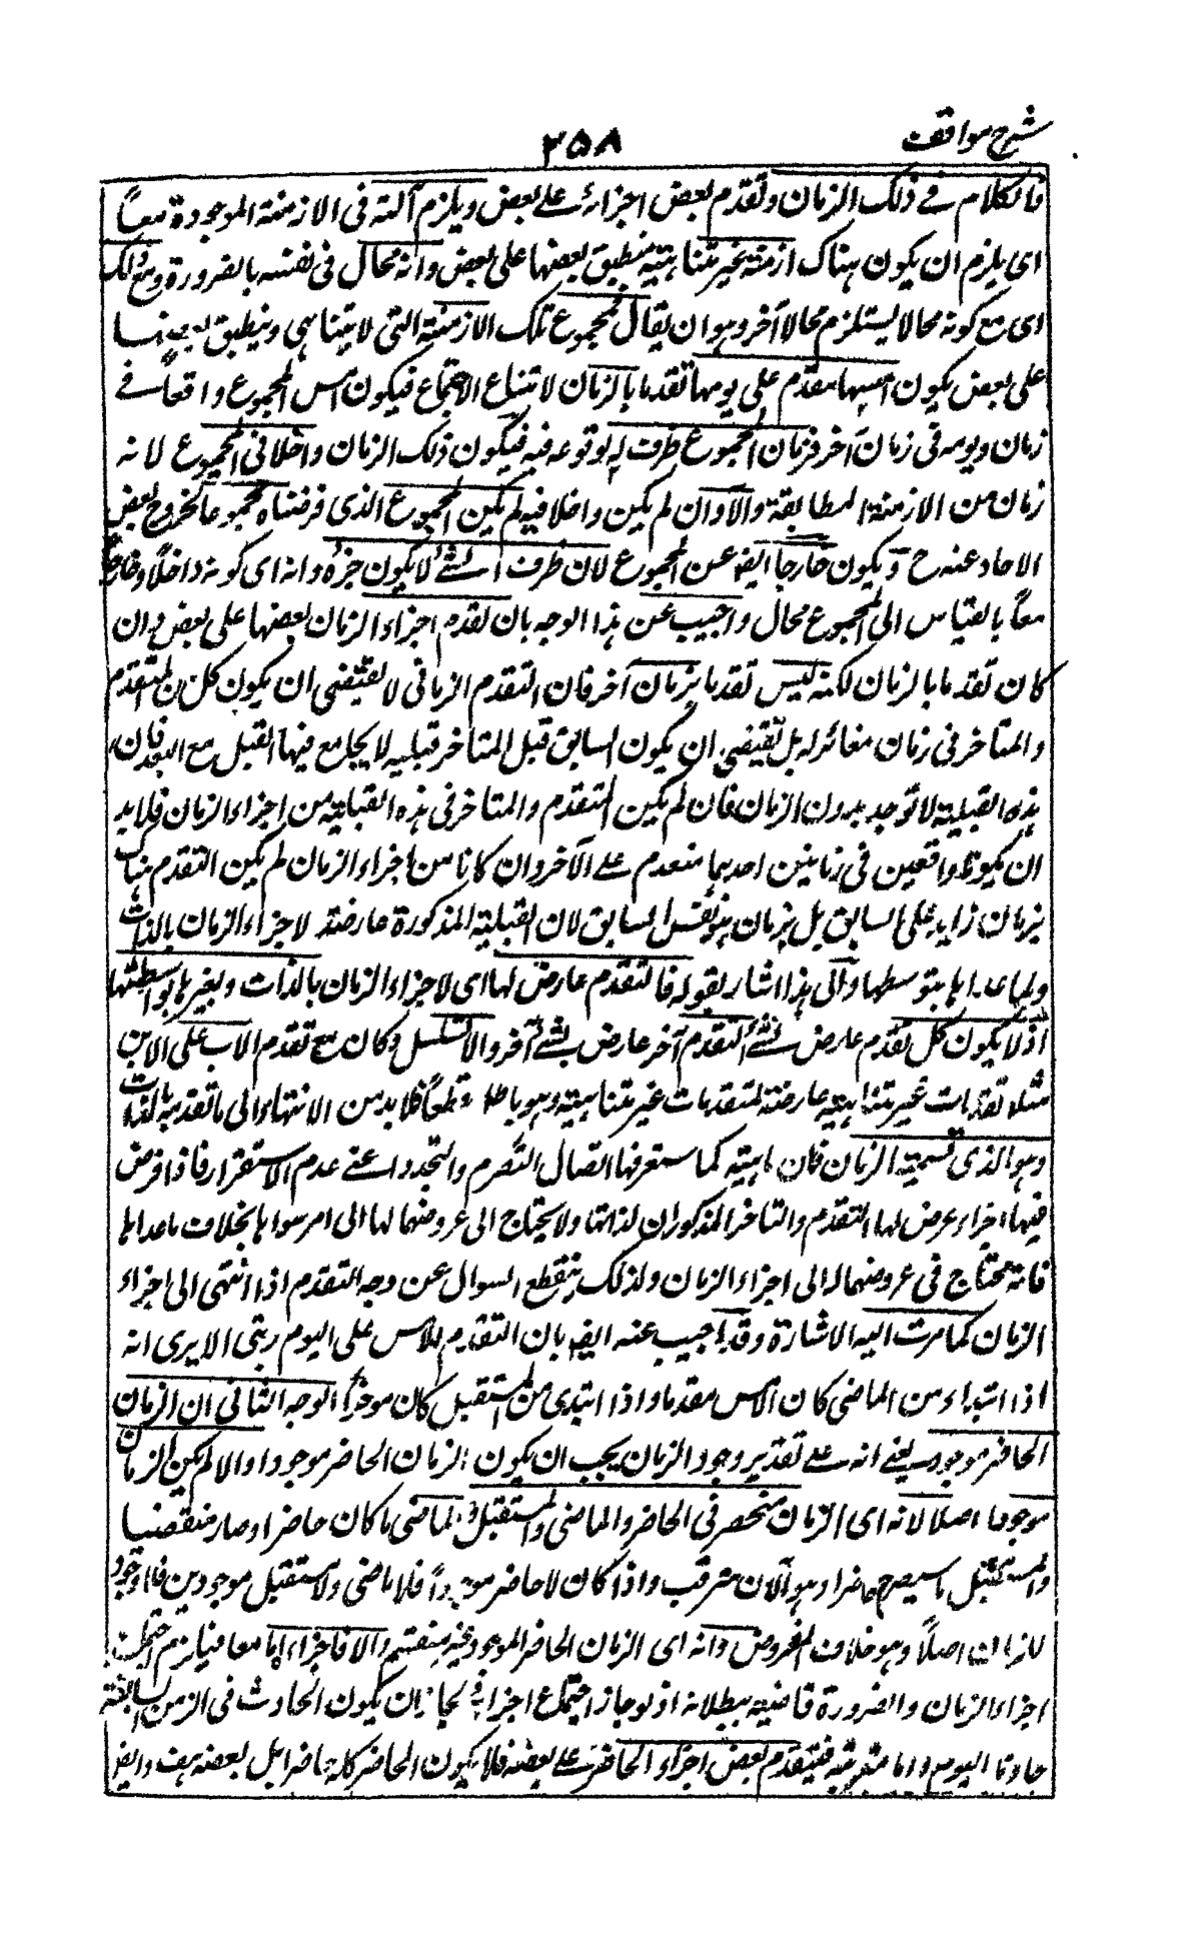 شرح مواقف
۲۵۸
فالكلام فى ذلك الزمان وتقدم بعض اجزائه على بعض ويلزم التس فى الازمنة الموجودة معاً
اى يلزم ان يكون هناك ازمنة غير متناهية ينطبق بعضها على بعض وانه محال فى نفسه بالضرورة ومع ذلك
اى مع كونه محالا يستلزم محالا آخر وهو ان يقال مجموع تلك الازمنة التى لا يتناهى وينطبق بعضها
على بعض يكون امسها مقدم على يومها تقدما بالزمان لامتناع الاجتماع فيكون امس المجموع واقعاً فى
زمان ويومه فى زمان آخر فزمان المجموع ظرف له لوقوعه فيه فيكون ذلك الزمان داخلا فى المجموع لانه
زمان من الازمنة المطابقة والا وان لم يكن داخلا فيه لم يكن المجموع الذى فرضناه مجموعا لخروج بعض
الاحاد عنه ح ويكون خارجا ايضا عن المجموع لان ظرف الشئ لا يكون جزءه وانه اى كونه داخلاً وخارجاً
معاً بالقياس الى المجموع محال واجيب عن هذا الوجه بان تقدم اجزاء الزمان بعضها على بعض وان
كان تقدما بالزمان لكنه ليس تقدما بزمان آخر فان التقدم الزمانى لا يقتضى ان يكون كل من المتقدم
والمتاخر فى زمان مغائر له بل يقتضى ان يكون السابق قبل المتاخر قبلية لا يجامع فيها القبل مع البعد فان
هذه القبلية لا توجد بدون الزمان فان لم يكن المتقدم والمتاخر فى هذه القبلية من اجزاء الزمان فلا بد
ان يكونا واقعين فى زمانين احدهما متقدم على الآخر وان كانا من اجزاء الزمان لم يكن التقدم هناك
بزمان زايد على السابق بل بزمان هو نفس السابق لان القبلية المذكورة عارضة لاجزاء الزمان بالذات
ولما عداها بتوسطها والى هذا اشار بقوله فالتقدم عارض لها اى لاجزاء الزمان بالذات ولغيرها بواسطتها
اذ لا يكون كل تقدم عارض لشئ لتقدم آخر عارض لشئ آخر والا تسلسل وكان مع تقدم الاب على الابن
مثلا تقدمات غير متناهية عارضة لمتقدمات غير متناهية وهو باطل قطعاً فلا بد من الانتهاء الى ما تقدمه بالذات
وهو الذى نسميه الزمان فان ماهيته كما ستعرفها اتصال التصرم والتجدد اعنى عدم الاستقرار فاذا فرض
فيها اجزاء عرض لها التقدم والتاخر المذكوران لذاتها ولا يحتاج الى عروضهما لها الى امر سواها بخلاف ما عداها
فانه محتاج فى عروضهما له الى اجزاء الزمان ولذلك ينقطع السوال عن وجه التقدم اذا انتهى الى اجزاء
الزمان كما مرت اليه الاشارة وقد اجيب عنه ايضا بان التقدم للامس على اليوم رتبى الا يرى انه
اذا ابتداء من الماضى كان الامس مقدما واذا ابتدى من المستقبل كان موخراً الوجه الثانى ان الزمان
الحاضر موجود يعنى انه على تقدير وجود الزمان يجب ان يكون الزمان الحاضر موجودا والا لم يكن الزمان
موجودا اصلا لانه اى الزمان منحصر فى الحاضر والماضى والمستقبل والماضى ما كان حاضرا وصار منقضيا
والمستقبل ما سيصير حاضرا وهو الآن مترقب واذا كان لا حاضر موجوداً فلا ماضى ولا مستقبل موجودين فلا وجود
للزمان اصلاً وهو خلاف المفروض وانه اى الزمان الحاضر الموجود غير منقسم والا فاجزاءه اما معا فيلزم اجتماع
اجزاء الزمان والضرورة قاضية ببطلانه اذ لو جاز اجتماع اجزائه لجاز ان يكون الحادث فى الزمن السابقة
حادثا اليوم واما مترتبة فيتقدم بعض اجزاء الحاضر على بعضه فلا يكون الحاضر كله حاضرا بل بعضه هف وايضا